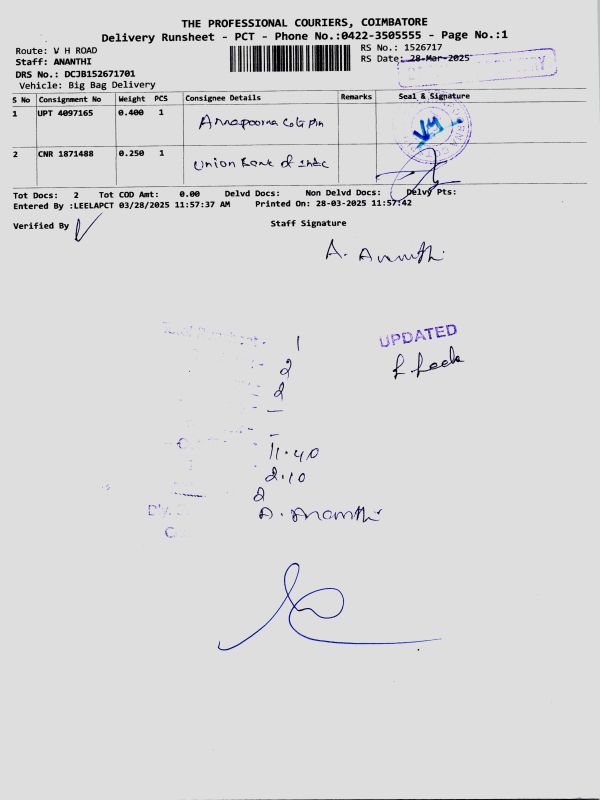 THE PROFESSIONAL COURIERS, COIMBATORE
Delivery Runsheet - PCT - Phone No.:0422-3505555 - Page No.:1
Route: W H ROAD
RS No.: 1526717
Staff: ANANTHI
RS Date: 28-Mar-2025
DRS No.: DCJB152671701
Vehicle: Big Bag Delivery
S No Consignment No Weight PCS Consignee Details Remarks Seal & Signature
1 UPT 4097165 0.400 1 Annapoorna
2 CNR 1871488 0.250 1 Union Bank of
Tot Docs: 2 Tot COD Amt: 0.00 Delvd Docs: Non Delvd Docs: Delvy Pts:
Entered By :LEELAPCT 03/28/2025 11:57:37 AM Printed On: 28-03-2025 11:57:42
Verified By
Staff Signature
A. Ananthi
1
UPDATED
2
2
11.40
2.10
2
A. Ananthi